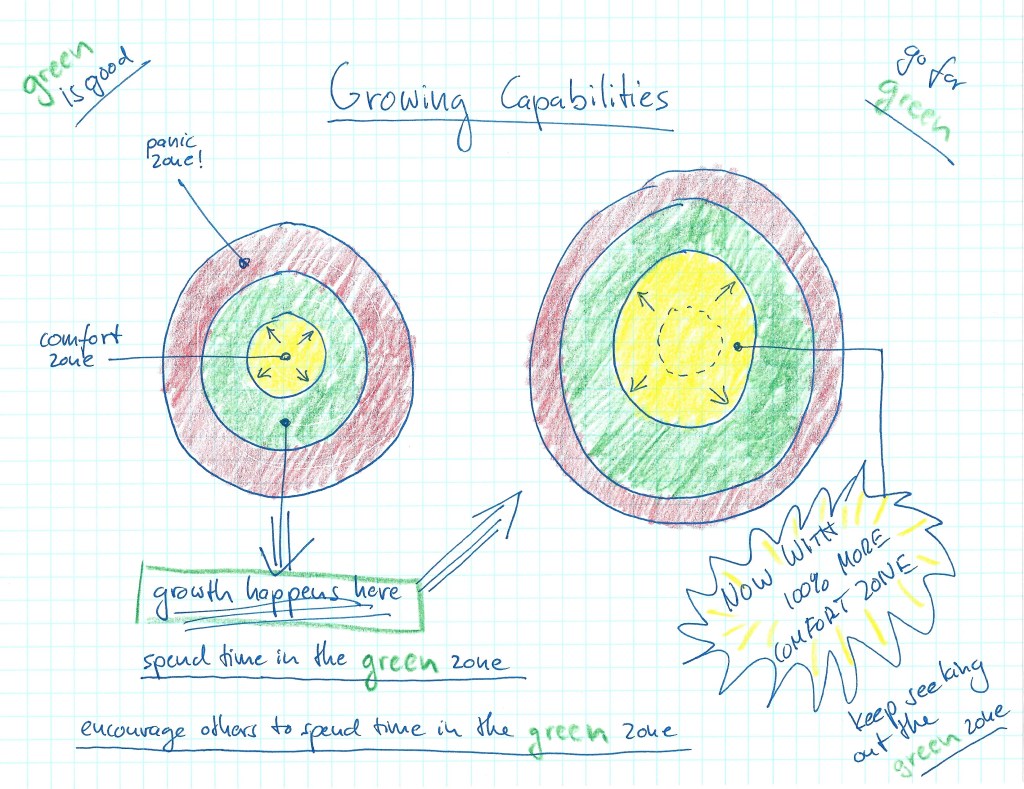 green
is good
Growing Capabilities
go for
green
panic
zone!
comfort
zone
growth happens here
spend time in the green zone
encourage others to spend time in the green zone
NOW WITH
100% MORE
COMFORT ZONE
keep seeking
out the
green zone